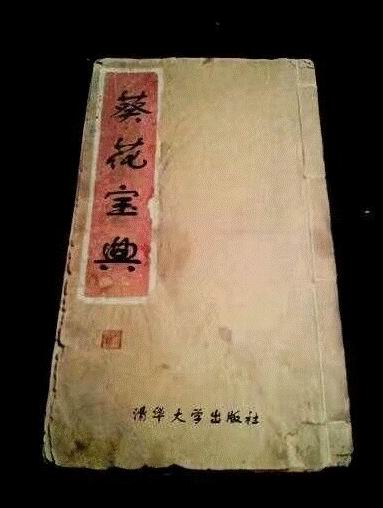 葵花宝典
清华大学出版社